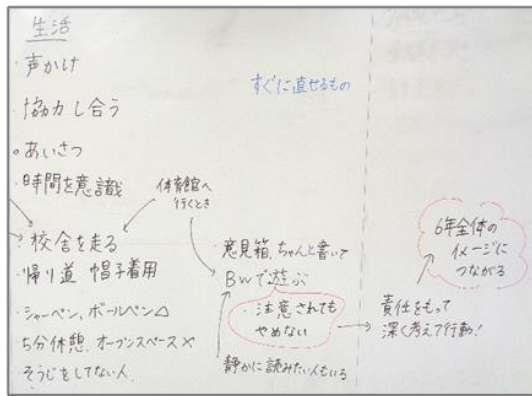 生活
・声かけ
・協力し合う
・あいさつ
・時間を意識
・校舎を走る
・帰り道 帽子着用
・シャーペン、ボールペン△
5分休憩、オープンスペース×
そうじをしてない人
すぐに直せるもの
体育館へ
行くとき
・意見箱、ちゃんと書いて
BWで遊ぶ
・注意されても
やめない
静かに読みたい人もいる
責任をもって
深く考えて行動!
6年全体の
イメージに
つながる